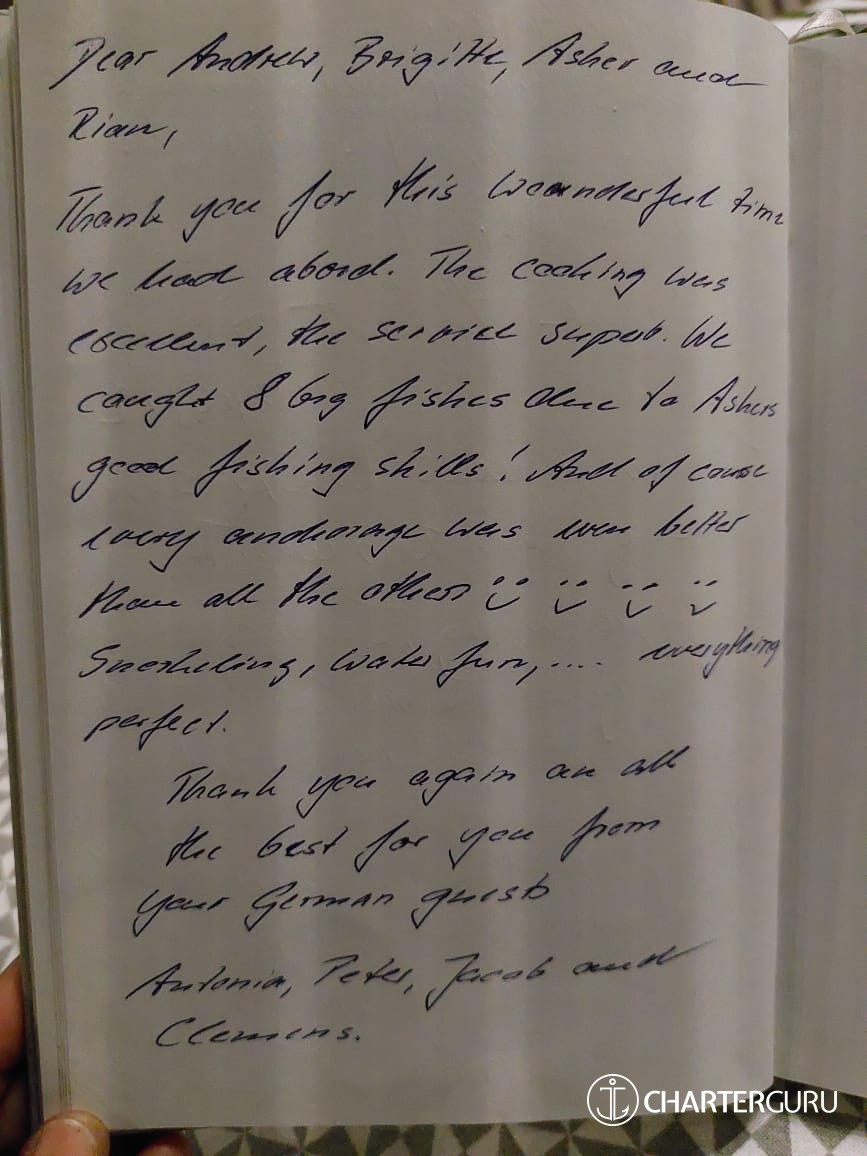 Dear Andrew, Brigitte, Asher and
Rian,
Thank you for this woanderful time
we had abord. The cooking was
excellent, the service superb. We
caught 8 big fishes due to Ashers
good fishing skills! And of course
every anchorage was even better
than all the others
Snorkeling, water fun, .... everything
perfect.
Thank you again an all
the best for you from
your German guests
Antonia, Peter, Jacob and
Clemens.
CHARTERGURU